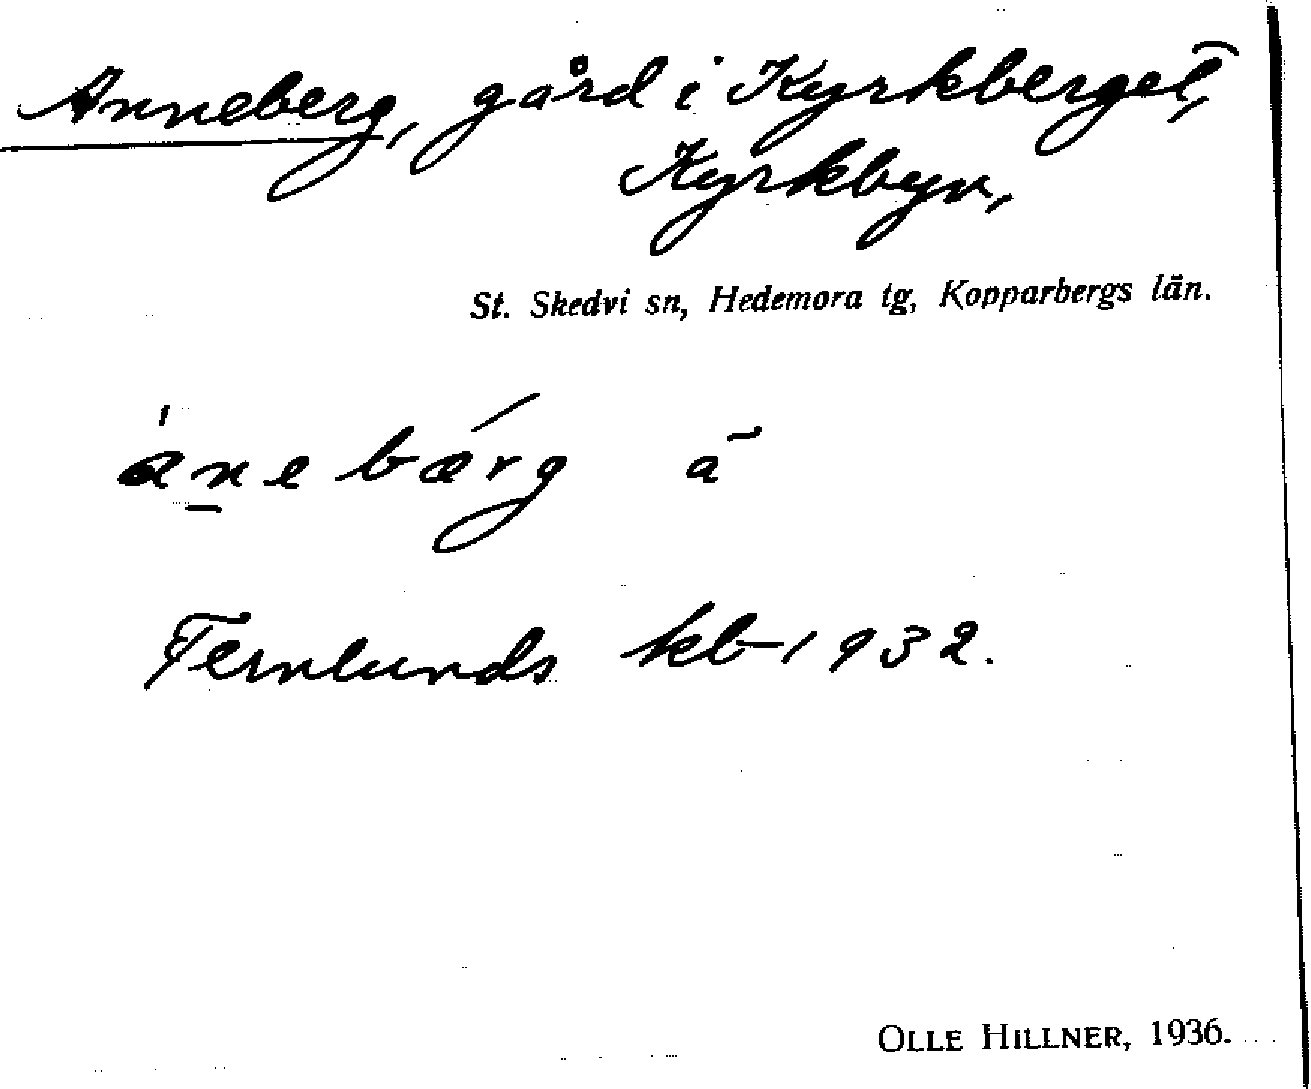 Anneberg, gård i Kyrkberget,
Kyrkbyn,
St. Skedvi sn, Hedemora tg, Kopparbergs län.
ánebærg a
Fernlunds kb 1932.
OLLE HILLNER, 1936.